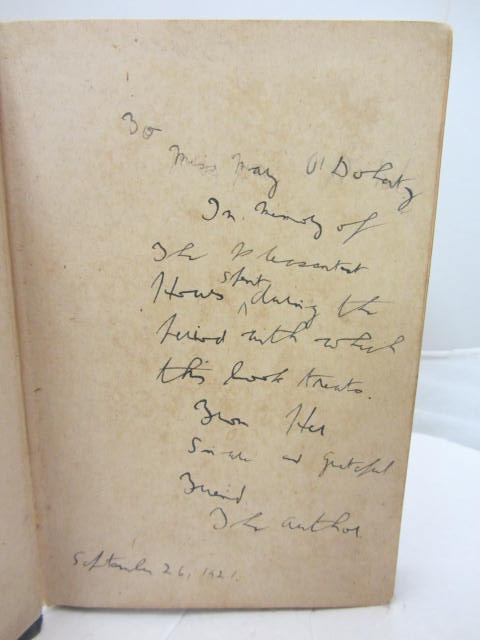 To
Miss Mary O'Doherty
In memory of
The Pleasantest
Hours spent during the
period with which
this book treats.
From Her
Sincere and Grateful
Friend
The author.
September 26, 1921.